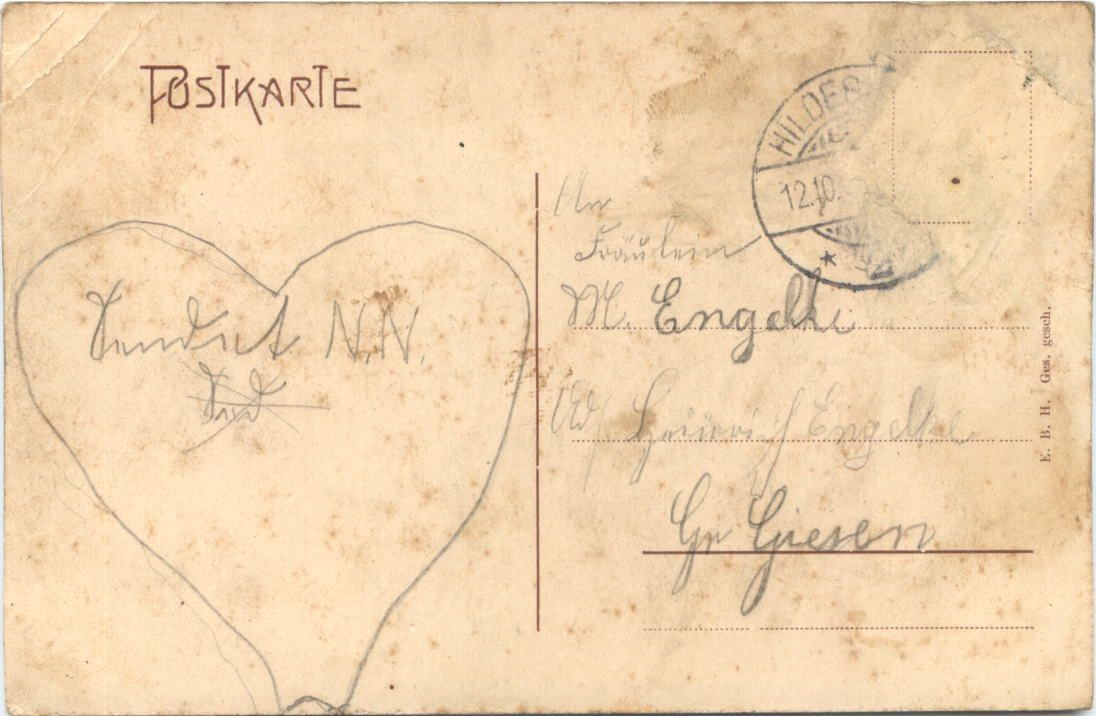 POSTKARTE
HILDES
12.10.
An
Fräulein
M. Engelke
Adr. Heinrich Engelke
Gr Giesen
Sendet N.N.
E. B. H. Ges. gesch.